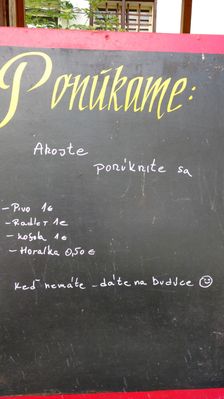 Ponúkame:
Akojte
ponúknite sa
- Pivo 1€
- Radler 1€
- kofola 1€
- Horalka 0,50€
Keď nemáte - dáte na budúce ☺